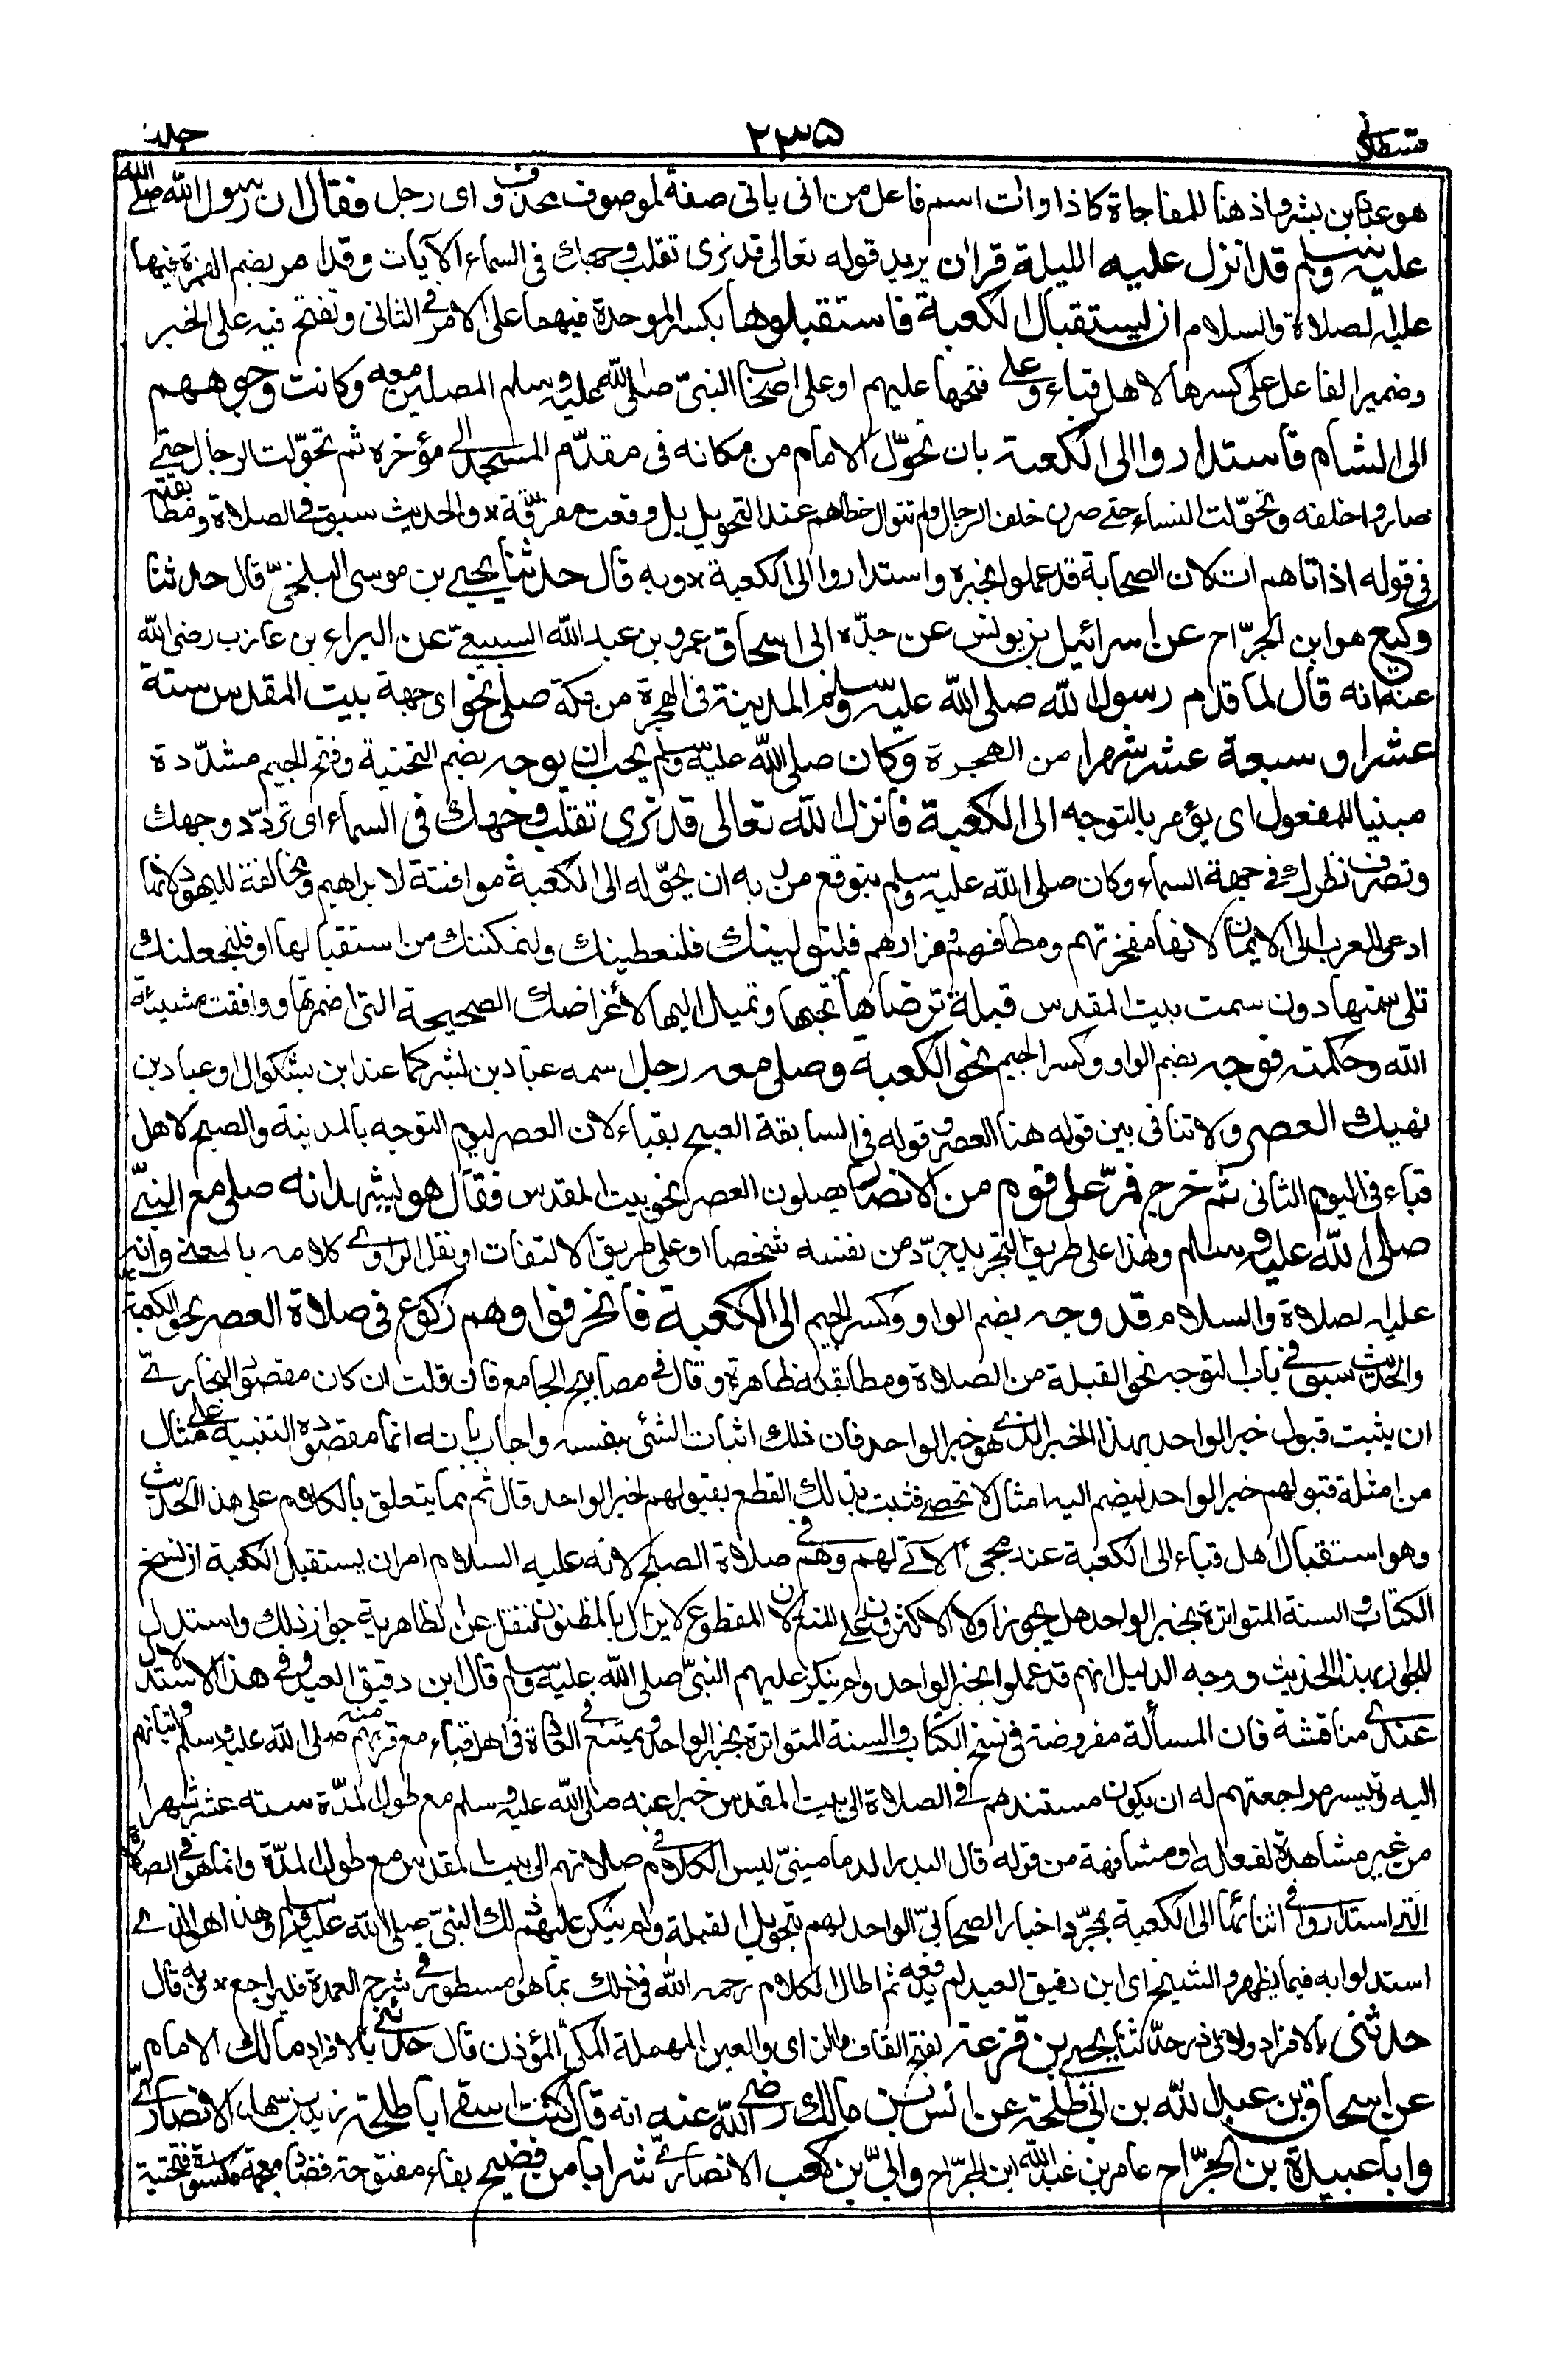 قسطلاني ٢٣٥ جلد
هو عباد بن بشر واذ هنا للمفاجاة كاذا وات اسم فاعل من اتى ياتي صفة لموصوف محذوف اى رجل فقال ان رسول الله صلى الله
عليه وسلم قد انزل عليه الليلة قران يريد قوله تعالى قد نرى تقلب وجهك في السماء الآيات وقد امر بضم الهمزة فيهما
عليه الصلاة والسلام ان يستقبل الكعبة فاستقبلوها بكسر الموحدة فيهما على الامر في الثاني وتفتح فيه على الخبر
وضمير الفاعل على كسرها لاهل قباء وعلى فتحها عليهم او على اصحاب النبيّ صلى الله عليه وسلم المصلين معه وكانت وجوههم
الى الشام فاستداروا الى الكعبة بان تحوّل الامام من مكانه في مقدّم المسجد الى مؤخره ثم تحوّلت الرجال حتى
صاروا خلفه وتحوّلت النساء حتى صرن خلف الرجال ولم تتوال خطاهم عند التحويل بل وقعت مفرّقة * والحديث سبق في الصلاة ومطابقته
في قوله اذ اتاهم ات لان الصحابة قد عملوا بخبره واستداروا الى الكعبة * وبه قال حدثنا يحيى بن موسى البلخيّ قال حدثنا
وكيع هو ابن الجرّاح عن اسرائيل بن يونس عن جدّه ابى اسحاق عمرو بن عبد الله السبيعيّ عن البراء بن عازب رضى الله
عنهما انه قال لما قدم رسول الله صلى الله عليه وسلم المدينة في الهجرة من مكة صلى نحو اى جهة بيت المقدس ستة
عشر او سبعة عشر شهرا من الهجرة وكان صلى الله عليه وسلم يحب ان يوجه بضم التحتية وفتح الجيم مشدّدة
مبنيا للمفعول اى يؤمر بالتوجه الى الكعبة فانزل الله تعالى قد نرى تقلب وجهك في السماء اى تردّد وجهك
وتصرف نظرك في جهة السماء وكان صلى الله عليه وسلم يتوقع من ربه ان يحوّله الى الكعبة موافقة لابراهيم ومخالفة لليهود ولانها
ادعى للعرب الى الايمان لانها مفخرتهم ومطافهم ومزارهم فلنولينك فلنعطينك ولنمكننك من استقبالها او فلنجعلنك
تلى سمتها دون سمت بيت المقدس قبلة ترضاها تحبها وتميل اليها لأغراضك الصحيحة التى اضمرتها ووافقت مشيئة
الله وحكمته فوجه بضم الواو وكسر الجيم نحو الكعبة وصلى معه رجل اسمه عباد بن بشر كما عند ابن بشكوال او عباد بن
نهيك العصر ولا تنافى بين قوله هنا العصر وقوله في السابقة الصبح بقباء لان العصر ليوم التوجه بالمدينة والصبح لاهل
قباء في اليوم الثانى ثم خرج فمرّ على قوم من الانصار يصلون العصر نحو بيت المقدس فقال هو يشهد انه صلى مع النبيّ
صلى الله عليه وسلم وهذا على طريق التجريد جرّد من نفسه شخصا او على طريق الالتفات او نقل الراوى كلامه بالمعنى وانه
عليه الصلاة والسلام قد وجه بضم الواو وكسر الجيم الى الكعبة فانحرفوا وهم ركوع في صلاة العصر نحو الكعبة
والحديث سبق في باب التوجه نحو القبلة من الصلاة ومطابقته ظاهرة وقال في مصابيح الجامع فان قلت ان كان مقصود البخارى
ان يثبت قبول خبر الواحد بهذا الخبر الذى هو خبر الواحد فان ذلك اثبات الشئ بنفسه واجاب بانه انما مقصوده التنبيه على مثال
من امثلة قبولهم خبر الواحد ليضم اليه امثال لا تحصى فثبت بذلك القطع بقبولهم لخبر الواحد قال ثم مما يتعلق بالكلام على هذا الحديث
وهو استقبال اهل قباء الى الكعبة عند مجئ الآتى لهم وهم في صلاة الصبح لانه عليه السلام امر ان يستقبل الكعبة ان نسخ
الكتاب والسنة المتواترة بخبر الواحد هل يجوز اولا الاكثرون على المنع لان المقطوع لا يزال بالمظنون فنقل عن الظاهرية جواز ذلك واستدل
للجواز بهذا الحديث ووجه الدليل انهم قد عملوا بخبر الواحد ولم ينكر عليهم النبيّ صلى الله عليه وسلم قال ابن دقيق العيد وفي هذا الاستدلال
عندى مناقشة فان المسألة مفروضة في نسخ الكتاب والسنة المتواترة بخبر الواحد ويمتنع في العادة في اهل قباء مع قربهم منه صلى الله عليه وسلم واتيانهم
اليه وتيسر مراجعتهم له ان يكون مستندهم في الصلاة الى بيت المقدس خبرا عنه صلى الله عليه وسلم مع طول المدّة ستة عشر شهرا
من غير مشاهدة لفعله او مشافهة من قوله قال البدر الدمامينيّ ليس الكلام في صلاتهم الى بيت المقدس مع طول المدّة وانما هو في الصلاة
التى استداروا في اثنائها الى الكعبة بمجرّد اخبار الصحابيّ الواحد لهم بتحويل القبلة ولم ينكر عليهم ذلك النبيّ صلى الله عليه وسلم وهذا هو الذى
استدلوا به فيما يظهر والشيخ اى ابن دقيق العيد لم يدفعه ثم اطال الكلام رحمه الله في ذلك بما هو مسطور في شرح العمدة فليراجع * وبه قال
حدثنى بالافراد ولابى ذر حدّثنا يحيى بن قزعة بفتح القاف والزاى والعين المهملة المكيّ المؤذن قال حدثنى بالافراد مالك الامام
عن اسحاق بن عبد الله بن ابى طلحة عن انس بن مالك رضى الله عنه انه قال كنت اسقى ابا طلحة زيد بن سهل الانصارىّ
وابا عبيدة بن الجرّاح عامر بن عبد الله ابن الجرّاح وابىّ بن كعب الانصارىّ شرابا من فضيخ بفاء مفتوحة فضاد معجمة مكسورة فتحتية